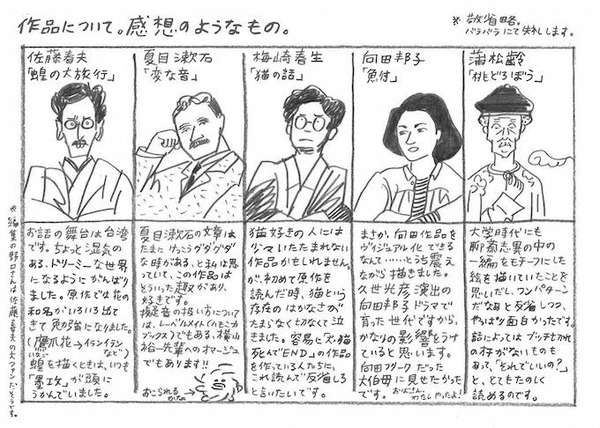 作品について。感想のようなもの。
※敬省略。
バラバラにて失礼します。
佐藤春夫
「蝗の大旅行」
夏目漱石
「変な音」
梅崎春生
「猫の話」
向田邦子
「魚付」
蒲松齢
「桃どろぼう」
お話の舞台は台湾
です。ちょっと湿気の
ある、ドリーミーな世界
になるようにがんば
りました。原作では花の
和名がいろいろ出て
きて勉強になりました。
(鷹爪花→イランイラン
など)
蝗を描くときは、いつも
「墨攻」が頭に
うかんでいました。
夏目漱石の文章は
たまにけっこうグダグダ
な時がある、と私は思
っていて、この作品は
そういった趣があり、
好きです。
擬音の扱い方につい
ては、レーベルメイト(ハモニカ
ブックス)でもある、横山
裕一先輩へのオマージュ
でもあります!!
おこられる
かな
猫好きの人には
少々いたたまれない
作品かもしれません
が、初めて原作を
読んだ時、猫という
存在のはかなさが
たまらなく切なくて泣
きました。容易に「犬・猫
死んでEND」の作品
を作っている人たちに、
これ読んで反省しろ
と言いたいです。
まさか、向田作品を
ヴィジュアル化できる
なんて……とうち震え
ながら描きました。
久世光彦演出の
向田邦子ドラマで
育った世代ですから、
かなりの影響をうけ
ていると思います。
向田フリークだった
大伯母に見せたかった
です。
おばさん、
わたしやったよ!
大学時代にも
聊斎志異の中の
一編をモチーフにした
絵を描いていたことを
思いだし、ワンパターン
だなあと反省しつつ、
やっぱり面白かったです。
話によってはブッチぎれ
の存がないものも
あって、「それでいいの?」
と、とてもたのしく
読めるのです。
※編集の野口さんは、佐藤春夫の大ファンだそうです。